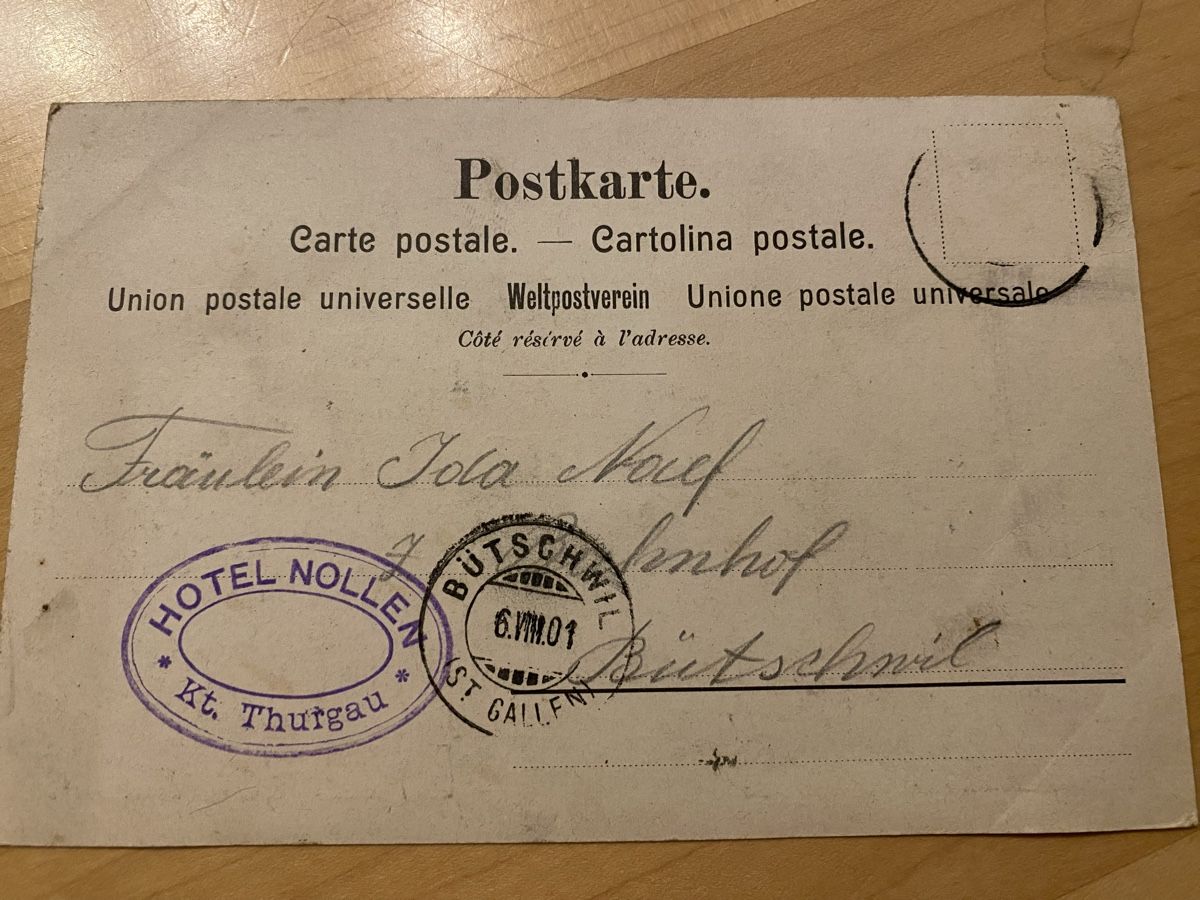 Postkarte.
Carte postale. — Cartolina postale.
Union postale universelle Weltpostverein Unione postale universale
Côté réservé à l'adresse.
Fräulein Ida Naef
z. Bahnhof
Bütschwil
HOTEL NOLLEN
* Kt. Thurgau *
BÜTSCHWIL
6.VIII.01
(ST. GALLEN)